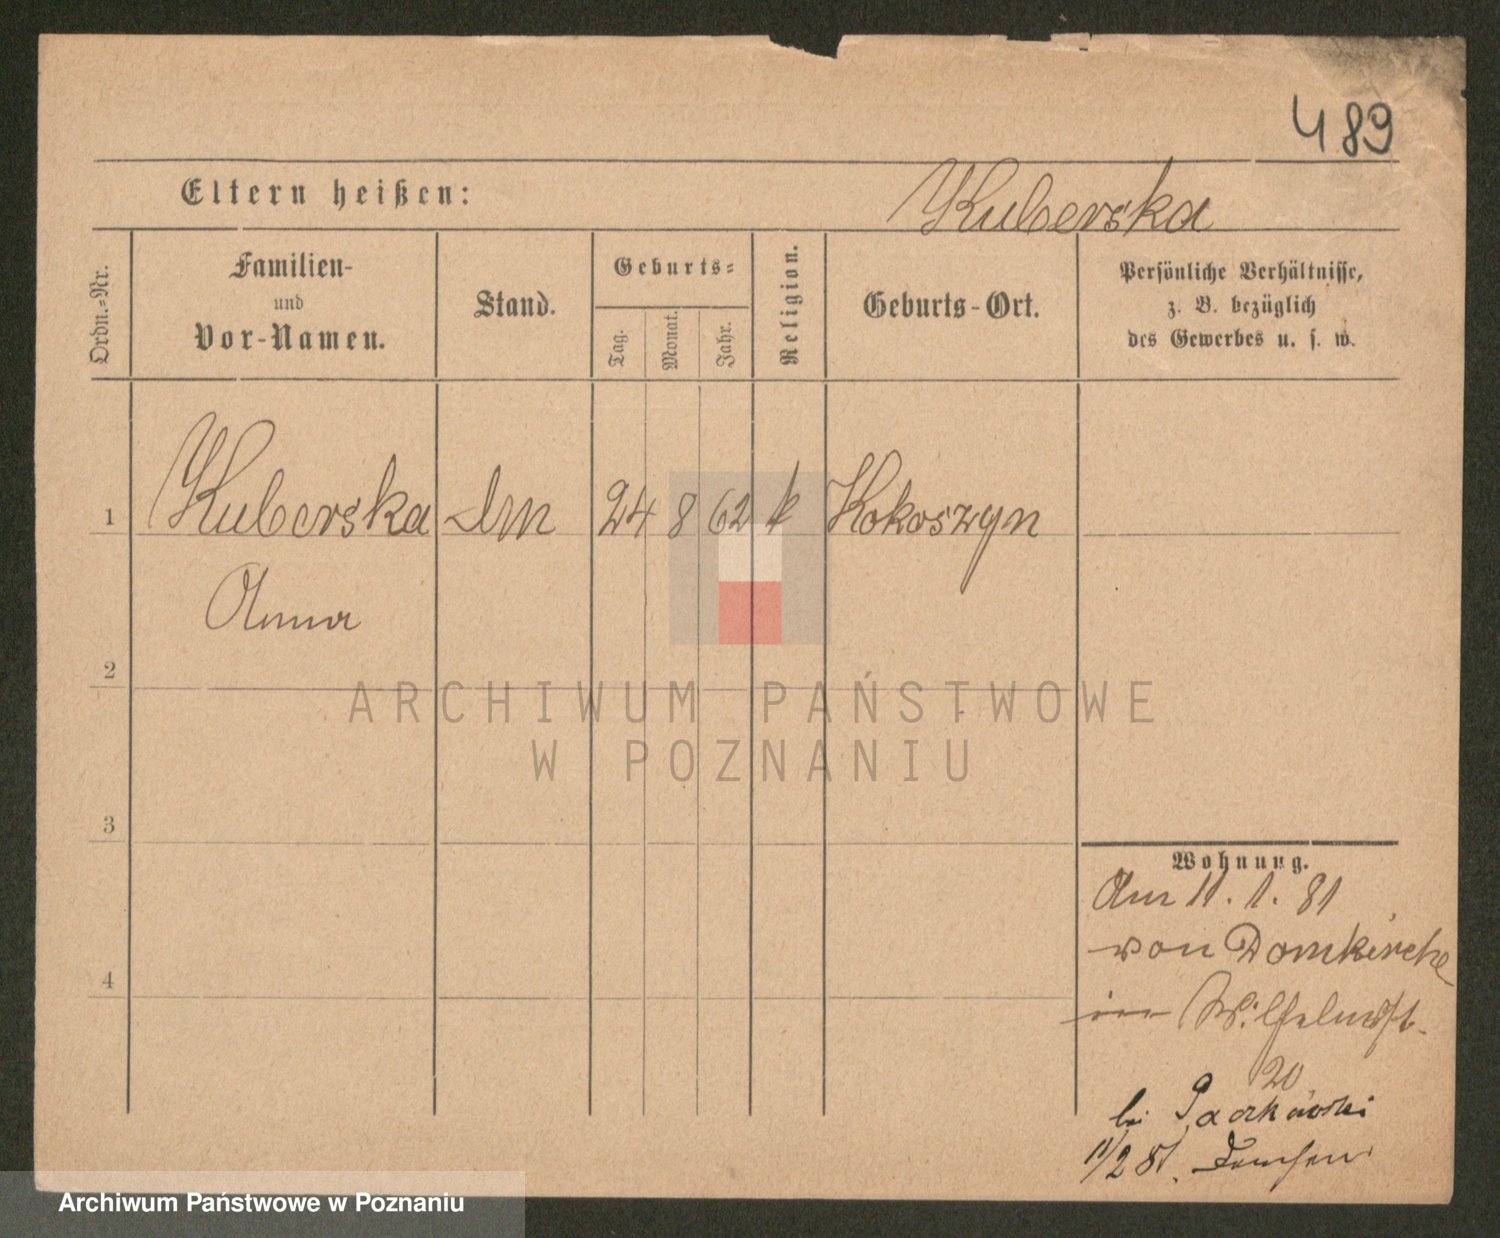 489
Eltern heißen:
Kuberska
Ordn.-Nr.
Familien-
und
Vor-Namen.
Stand.
Geburts-
Tag.
Monat.
Jahr.
Religion.
Geburts-Ort.
Persönliche Verhältnisse,
z. B. bezüglich
des Gewerbes u. s. w.
1 Kuberska 24 8 62 k Kokoszyn
Anna
2
3
4
ARCHIWUM PAŃSTWOWE
W POZNANIU
Wohnung.
Am 11. 1. 81
von Domkirche
in Wilhelmst.
20
bei Paczkowski
11/2 81.
Archiwum Państwowe w Poznaniu